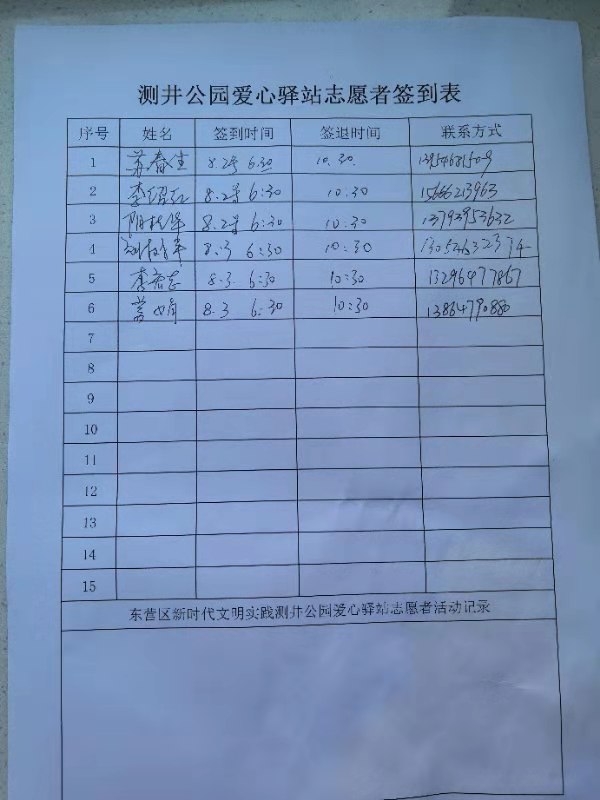 测井公园爱心驿站志愿者签到表
序号 姓名 签到时间 签退时间 联系方式
1 苏春生 8.2号 6.30 10.30. 13954681509
2 李绍红 8.2号 6:30 10.30 15666213963
3 8.2号 6:30 10:30 13793953632
4 8.3 6:30 10:30 13054632374
5 8.3. 6:30 10:30 13296477867
6 8.3 6:30 10:30 13864790880
7
8
9
10
11
12
13
14
15
东营区新时代文明实践测井公园爱心驿站志愿者活动记录